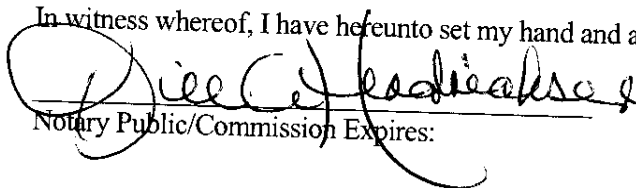 In witness whereof, I have hereunto set my hand and a
Notary Public/Commission Expires: